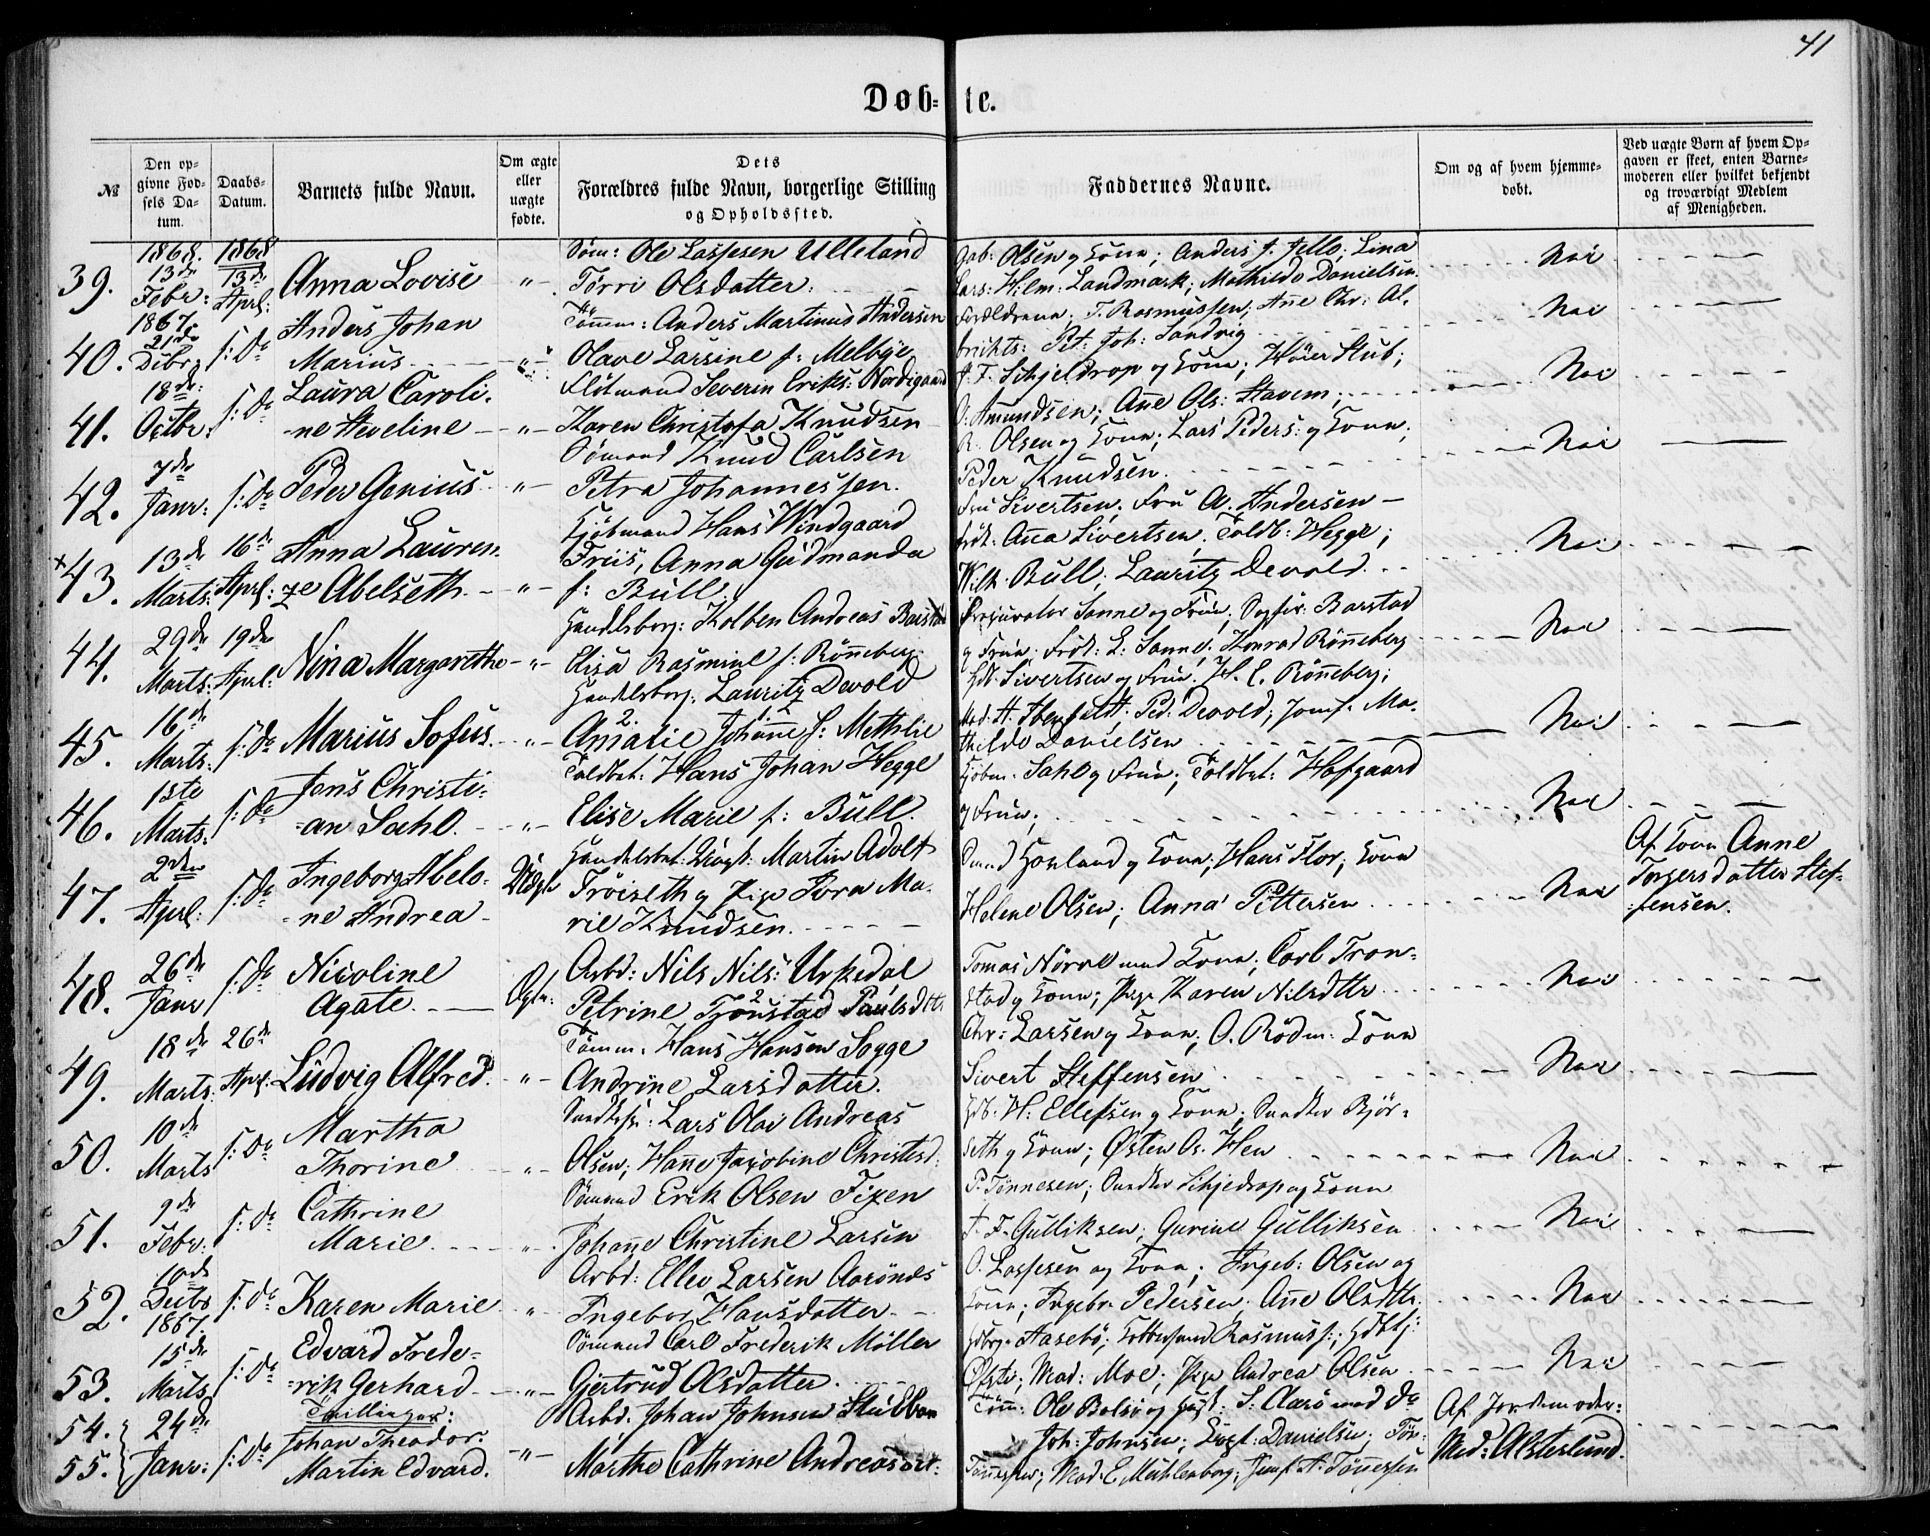 41
Døb=te.
№
Den op=
givne Fød=
sels Da=
tum.
Daabs=
Datum.
Barnets fulde Navn.
Om ægte
eller
uægte
fødte.
Dets
Forældres fulde Navn, borgerlige Stilling
og Opholdssted.
Faddernes Navne.
Om og af hvem hjemme=
døbt.
Ved uægte Børn af hvem Op=
gaven er skeet, enten Barne=
moderen eller hvilket bekjendt
og troværdigt Medlem
af Menigheden.
39.
1868.
13de
Febr:
1868
13de
Aprl:
Anna Lovise
"
Søm: Ole Lassesen Ulleland
Törri Olsdatter.
Olsen og Kone; Anders J. Jello; Lina
Lars: H:lm: Landmark; Mathilde Danielsen
Nei
40.
1867
21de
Dcbr
s: Da
Anders Johan
Marius
"
Tømm: Anders Martinus Andersen
Olave Larsine f: Melbye
Forældrene; T. Rasmussen; Ane Chr: Al.
brichts: Pet: Joh: Sandvig
Nei
41.
18de
Octbr:
s: Da
Laura Caroli.
-ne Heveline
"
Flötmand Severin Eriks: Nordigaard
Karen Christofa Knudsen
J. F. Schjeldrop og Kone; Stub;
O. Amundsen; Ane Ols: Stavem;
Nei
42.
7de
Janr:
s: Da
Peder Genius
"
Sømand Knud Carlsen
Petra Johannessen.
R. Olsen og Kone; Lars Peders: og Kone;
Peder Knudsen.
Nei
43.
13de
Marts:
16de
Aprl:
Anna Lauren
ze Abelseth
"
Kjöbmand Hans Windgaard
Friis, Anna Gudmanda
f: Bull.
Fru Sivertsen; Fru A. Andersen
Frök: Ana Sivertsen; Toldb: Hegge;
Wilh. Bull; Lauritz Devold.
Nei
44.
29de
Marts:
19de
Aprl:
Nina Margarethe
"
Handelsborg: Kolben Andreas Barstad
Elisa Rasmine f: Rönneberg.
Procurator Sanne og Frue; Sagför: Barstad
og Frue; Frök: L: Sanne; Konrad Rönneberg
Nei
45.
16de
Marts:
s: Da
Marius Sofus
"
Handelsborg: Lauritz Devold
Amalie Johanne f: Methlie
Sivertsen og Frue; H. C. Rönneberg;
Mad: H. Ibenfeldt; Ped: Devold; Jomf. Ma-
thilde Danielsen
Nei
46.
1ste
Marts:
s: Da
Jens Christi=
=an Sahl.
"
Toldbet: Hans Johan Hegge
Elise Marie f: Bull.
Kjöbm. Sahl og Frue; Toldbet: Hofgaard
og Frue;
Nei
47.
2den
Aprl:
s: Da
Ingeborg Abelo-
-ne Andrea
Uægte
Handelsbet: Ungk: Martin Adolf
Tröiseth og Pige Tora Ma-
rie Knudsen.
Hovland og Kone; Hans Flor; Kone
Helene Olsen; Anna Pettersen
Nei
Af Kone Anne
Torgersdatter Stef-
fensen.
48.
26de
Janr
s: Da
Nicoline
Agate.
Ægte:
Arbd: Nils Nils: Urkedal
Petrine Tjönstad Paulsdtr.
Tomas Nörve med Kone; Carl Tron-
stad og Kone; Pige Karen Nilsdtr
Nei
49.
18de
Marts:
26de
Aprl:
Ludvig Alfred.
"
Tömm. Hans Hansen Sogge
Andrine Larsdatter.
Chr: Larsen og Kone; O. Rödm: Kone
Sivert Steffensen
Nei
50.
10de
Marts
s: Da
Martha
Thorine
"
Lars Olai Andreas
Olsen; Hanne Jacobine Christsd.
H: Ellefsen og Kone; Snedker Björ=
seth og Kone; Østen Os: Hen
Nei
51.
9de
Febr:
s: Da
Cathrine
Marie.
"
Sömand Erik Olsen Fixen
Johanne Christine Larsen
P. Tönnesen; Snedker Schjedrop og Kone
F. F. Gulliksen; Gurine Gulliksen
Nei
52.
10de
Decbr
1867.
s: Da
Karen Marie
"
Arbd: Ellev Larsen Aarönæs
Ingebor Hansdatter.
O. Lassesen og Kone; Ingeb: Olsen og
Kone; Ingebr Pedersen; Ane Olsdtr.
Nei
53.
15de
Marts
s: Da
Edvard Frede=
=rik Gerhard
"
Sömand Carl Frederik Möller
Gjertrud Olsdatter.
Aasebö; Rasmuss:
Mad: Moe; Pige Andrea Olsen
Nei
54.
55.
24de
Janr:
s: Da
Tvillinger:
Johan Theodor.
Martin Edvard.
"
Arbd. Johan Johnsen Stubben
Marthe Cathrine Andreasdt:
Tömm: Ole Bolsö og S. Aarö med Da
Joh: Johnsen; Danielsen;
Tönnesen; Mad: E. Mühlenborg; Jomf. A. Tönnesen
Af Jordemoder:
Md: Alsterlund.